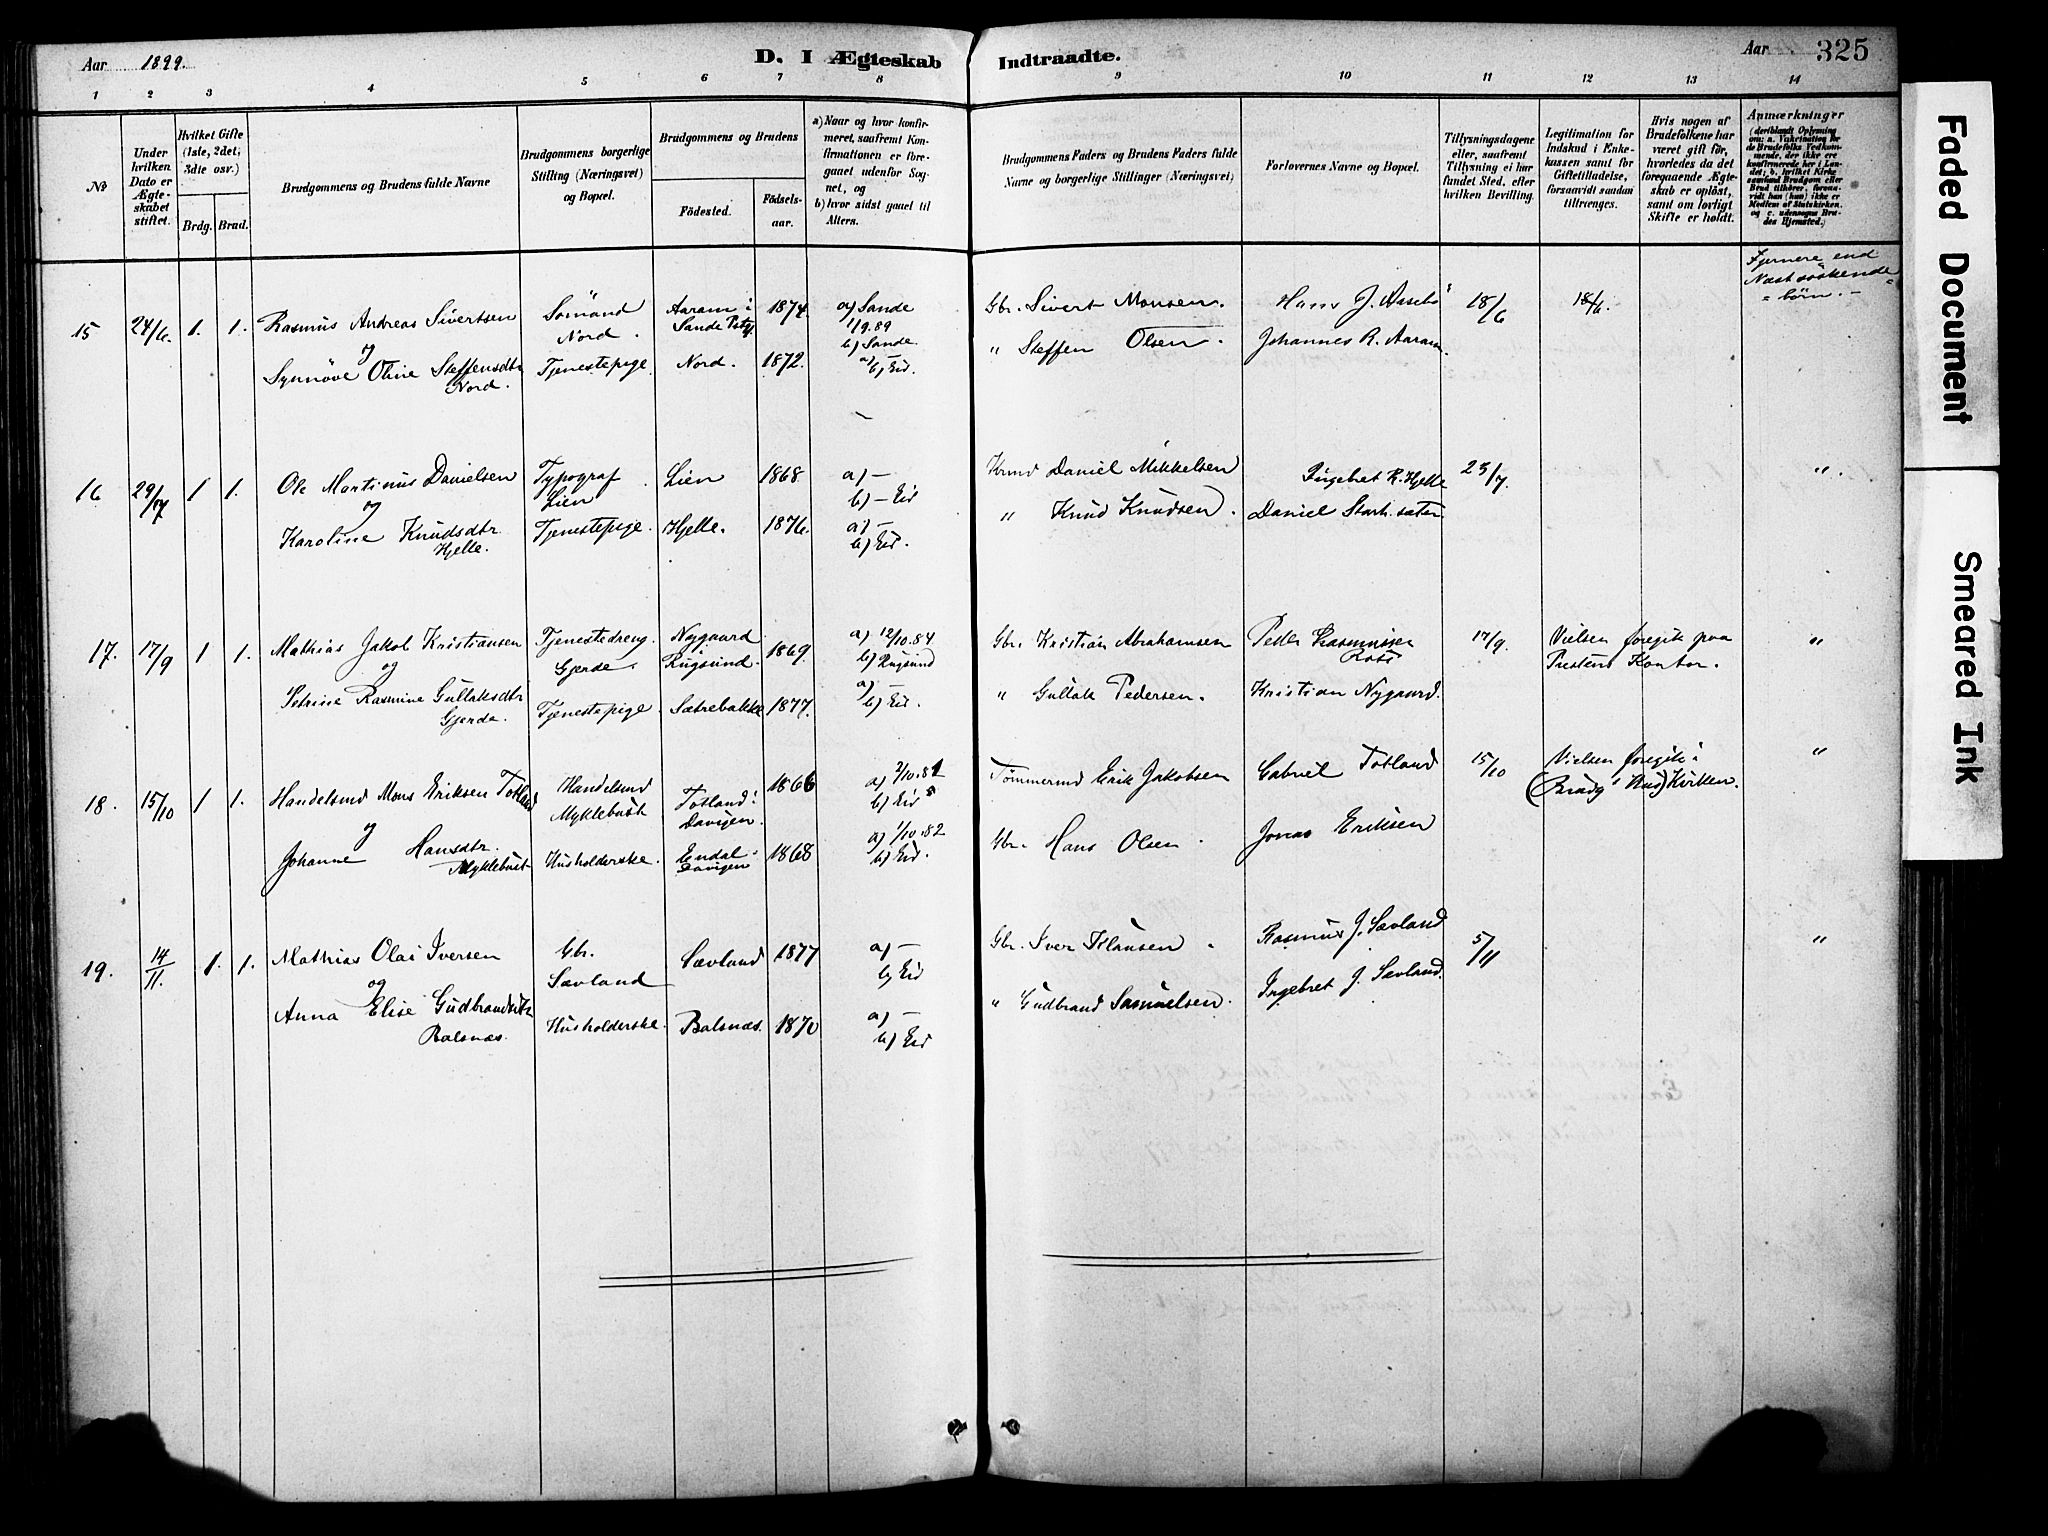 Aar 1899.
D. I Ægteskab
Indtraadte.
Aar
325
1 2 3 4 5 6 7 8 9 10 11 12 13 14
№
Under hvilken Dato er Ægteskabet stiftet.
Hvilket Gifte (1ste, 2det, 3dte osv.)
Brdg. Brud.
Brudgommens og Brudens fulde Navne
Brudgommens borgerlige Stilling (Næringsvei) og Bopæl.
Brudgommens og Brudens
Födested.
Födselsaar.
a) Naar og hvor konfirmeret, saafremt Konfirmationen er foregaaet udenfor Sognet, og
b) hvor sidst gaaet til Alters.
Brudgommens Faders og Brudens Faders fulde Navne og borgerlige Stillinger (Næringsvei)
Forlovernes Navne og Bopæl.
Tillysningsdagene eller, saafremt Tillysning ei har fundet Sted, efter hvilken Bevilling.
Legitimation for Indskud i Enkekassen samt for Giftetilladelse, forsaavidt saadan tiltrænges.
Hvis nogen af Brudefolkene har været gift för, hvorledes da det foregaaende Ægteskab er oplöst, samt om lovligt Skifte er holdt.
Anmærkninger
(deriblandt Oplysning om: a. Vakcination for de Brudefolks Vedkommende, der ikke ere konfirmerede her i Landet; b. hvilket Kirkesamfund Brudgom eller Brud tilhörer, forsaavidt han (hun) ikke er Medlem af Statskirken, og c. udensogns Brudes Hjemsted.)
15 24/6. 1. 1. Rasmus Andreas Sivertsen Sömand Nord. Aaram i Sande Pstg 1874. a) Sande 1/9.89 b) Sande. Gbr. Sivert Monsen. Hans J. 18/6 18/6. Fjernere end Næstsöskendebörn.
og
Synnöve Oline Steffensdtr Nord. Tjenestepige. Nord. 1872. a) – b) Eid. " Steffen Olsen. Johannes R. Aaram.
16 29/7 1 1. Ole Martinus Danielsen Typograf Lien Lien 1868 a) – b) – Eid Daniel Mikkelsen Ingebret R. Hjelle 23/7. ".
og
Karoline Knudsdtr Hjelle. Tjenestepige. Hjelle. 1876. a) – b) Eid. " Knud Knudsen. Daniel
17. 17/9 1 1. Mathias Jakob Kristiansen Tjenestedreng. Gjerde. Nygaard Rugsund. 1869. a) 12/10.84 b) Rugsund Gbr. Kristian Abrahamsen Peder Rasmussen 17/9. Vielsen foregik paa Prestens Kontor. "
og
Petrine Rasmine Gullaksdtr Gjerde. Tjenestepige. Sætrebakke 1877. a) – b) Eid. " Gullak Pedersen. Kristian Nygaard.
18. 15/10 1 1. Handelsmd Mons Eriksen Totland Handelsmd Myklebust Totland i Davigen. 1866 a) 2/10.81 b) Eid Tömmermd Erik Jakobsen Gabriel Totland 15/10 Vielsen foregik i (Brudg's Hus) Kvitten. "
og
Johanne Hansdtr. Myklebust Husholderske. Endal i Davigen 1868 a) 1/10.82 b) Eid. Gbr. Hans Olsen. Jonas Eriksen
19. 14/11. 1. 1. Mathias Olai Iversen Gbr. Sævland Sævland 1877 a) – b) Eid Gbr. Iver Klausen. Rasmus J. Sævland 5/11 "
og
Anna Elise Gudbrandsdtr Balsnæs. Husholderske. Balsnæs. 1870 a) – b) Eid " Gudbrand Samuelsen. Ingebret J. Sævland.
Faded Document
Smeared Ink